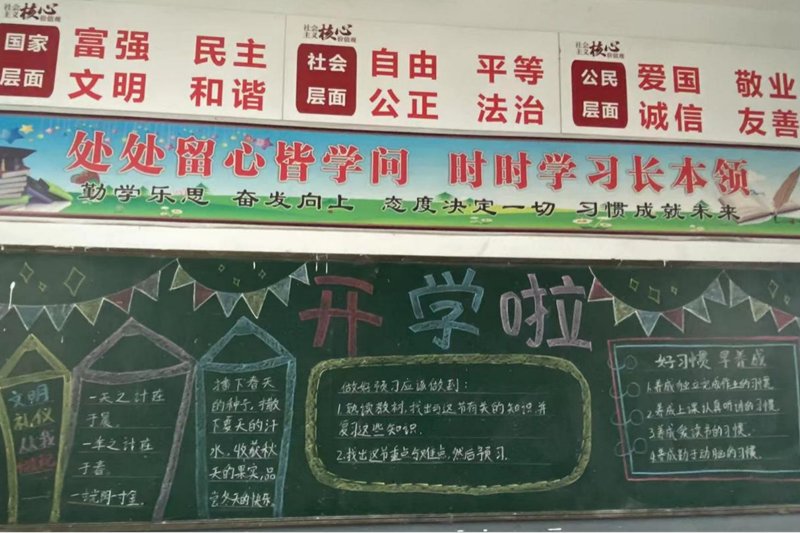 社会主义核心价值观
国家层面
富强 民主
文明 和谐
社会主义核心价值观
社会层面
自由 平等
公正 法治
社会主义核心价值观
公民层面
爱国 敬业
诚信 友善
处处留心皆学问 时时学习长本领
勤学乐思 奋发向上 态度决定一切 习惯成就未来
开学啦
文明
礼仪
从我
做起
一天之计在
于晨。
一年之计在
于春。
一寸光阴一寸金。
播下春天
的种子，撒
下夏天的汗
水，收获秋
天的果实，品
尝冬天的快乐。
做好预习应该做到：
1.熟读教材，找出与这节有关的知识，并
复习这些知识。
2.找出这节重点与难点，然后预习。
好习惯 早养成
1.养成独立完成作业的习惯
2.养成上课认真听讲的习惯
3.养成爱读书的习惯。
4.养成勤于动脑的习惯。